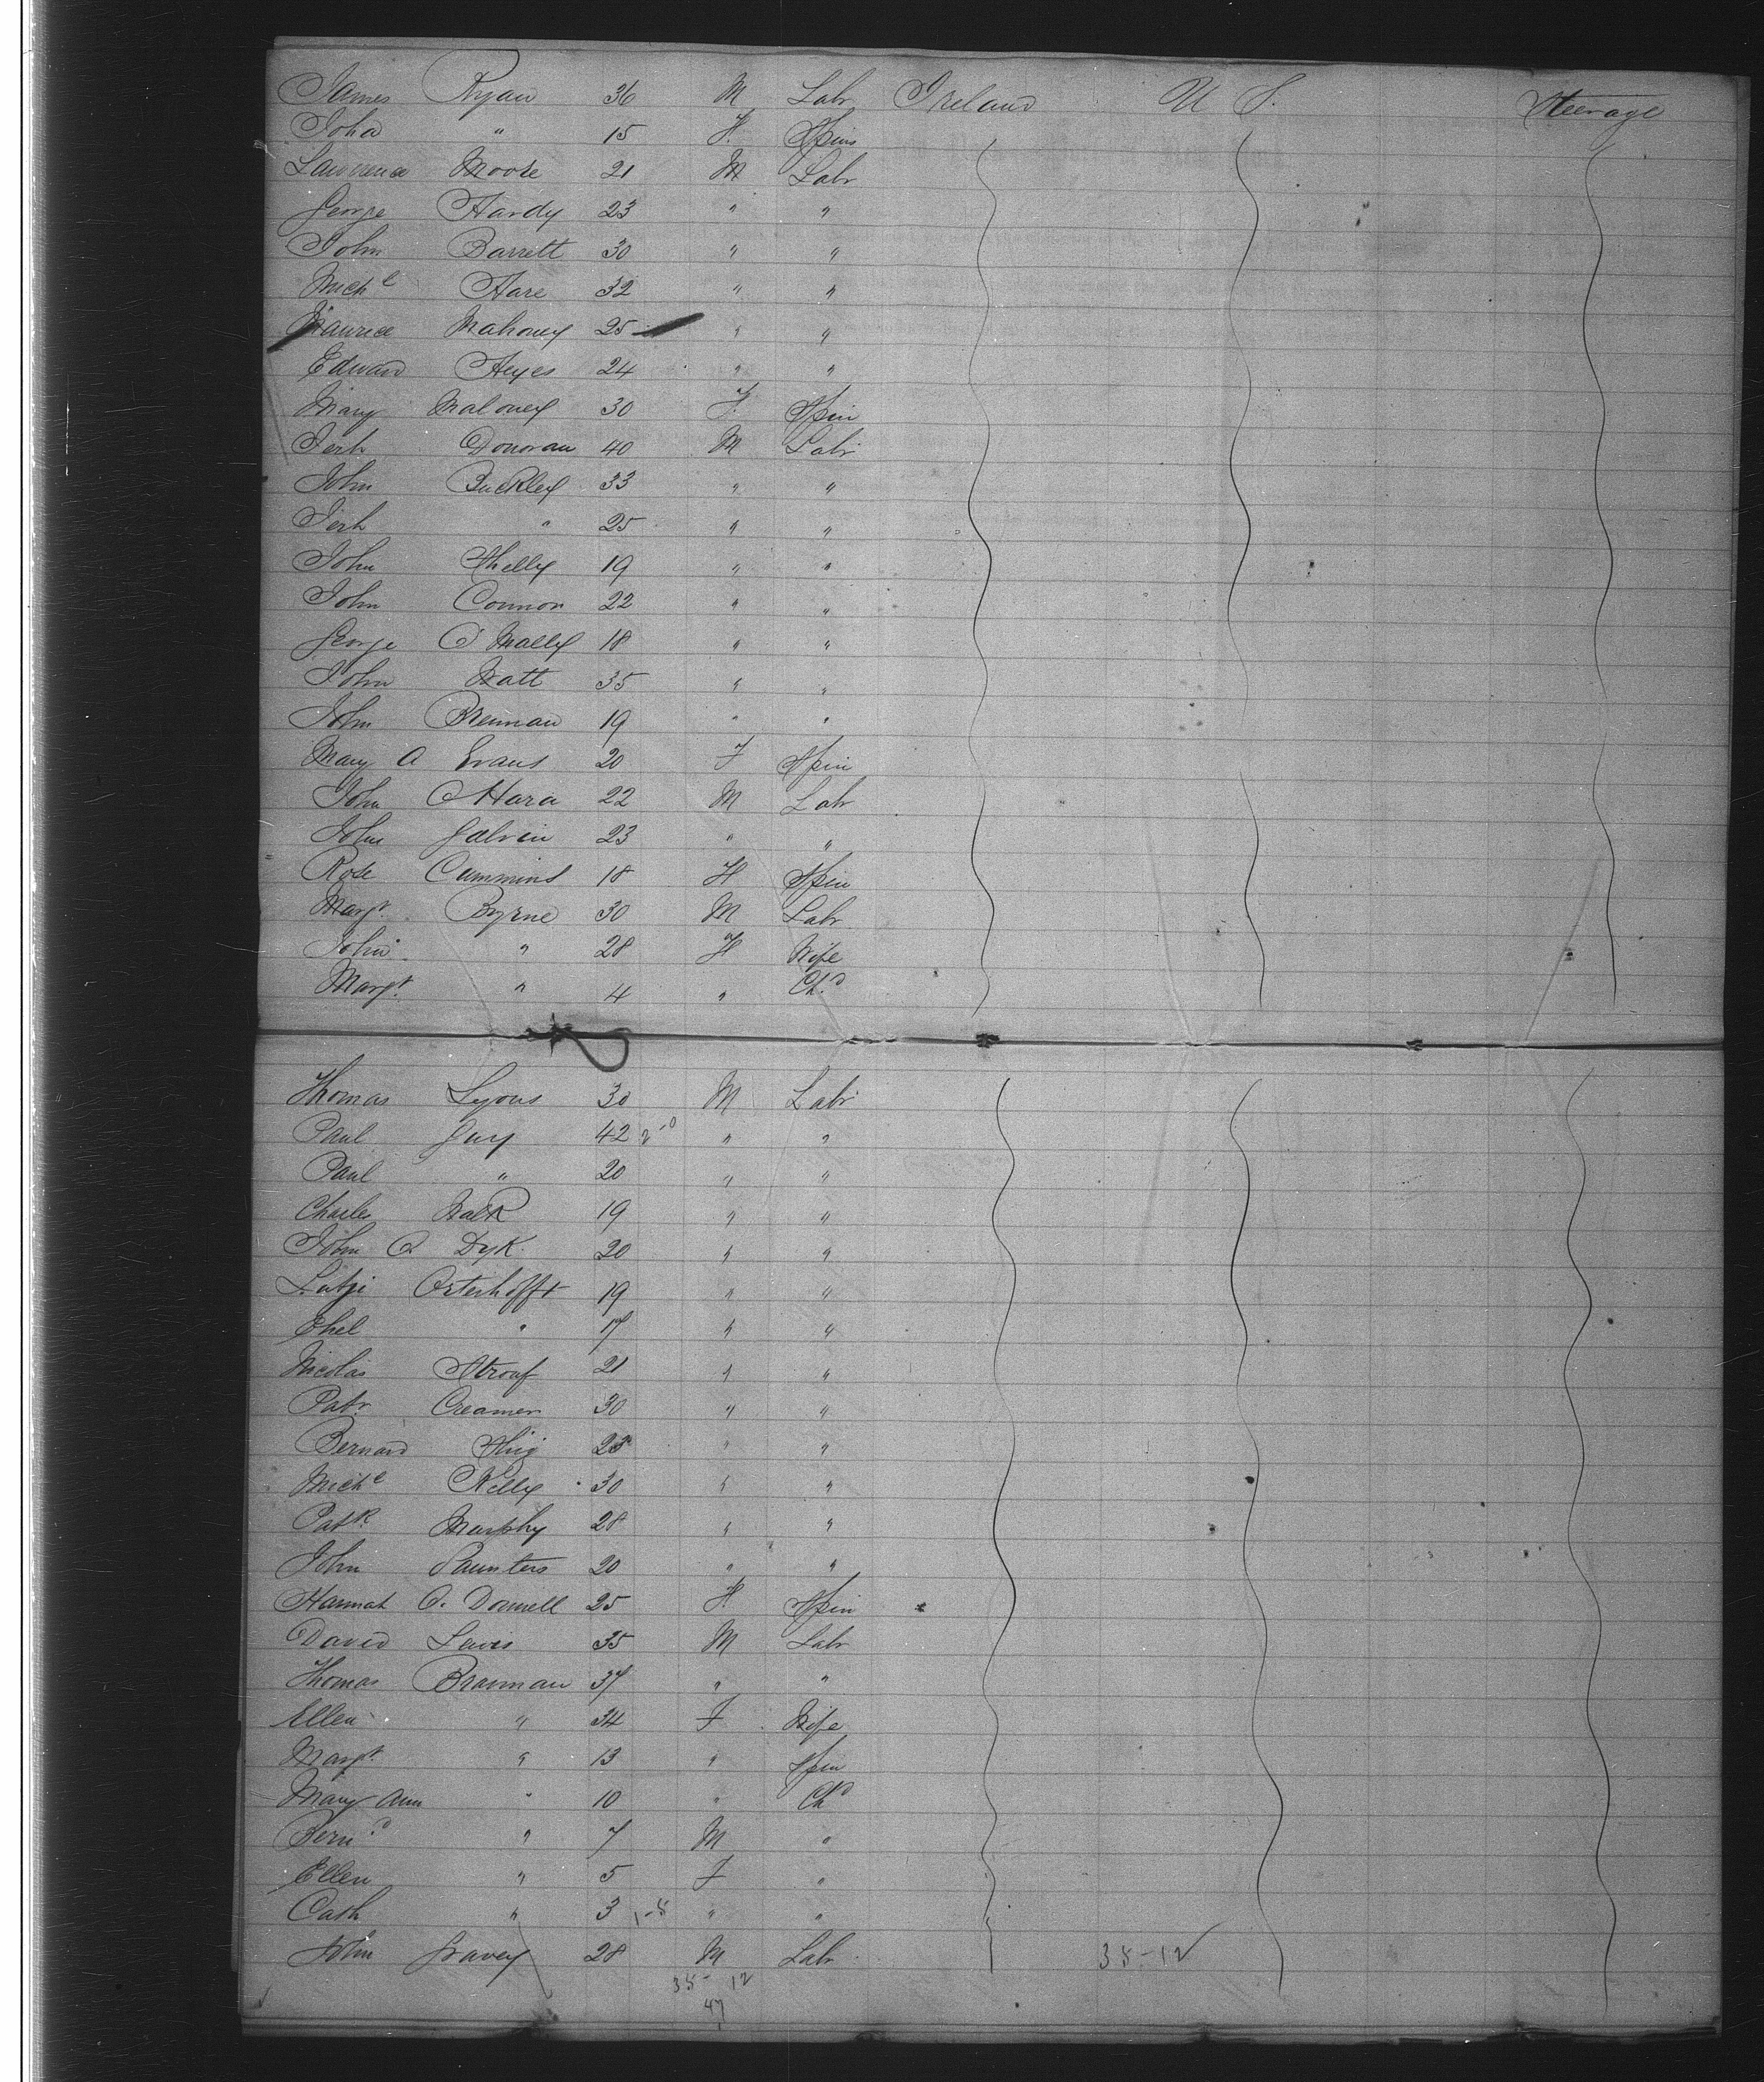 James Ryan 36 M Labr Ireland U S. Steerage
Joha " 15 F. Spin
Lawrence Moore 21 M Labr
George Hardy 23 " "
John Barrett 30 " "
Michl Hare 32 " "
Maurice Mahoney 25 " "
Edward Heyes 24 " "
Mary Maloney 30 F. Spin
Jerh Donovan 40 M Labr
John Buckley 33 " "
Jerh " 25 " "
John Shelly 19 " "
John Connor 22 " "
George O'Mally 18 " "
John Watt 35 " "
John Brennan 19 " "
Mary A Evans 20 F Spin
John OHara 22 M Labr
John Galvin 23 " "
Rose Cummins 18 F Spin
Margt Byrne 30 M Labr
John " 28 F Wife
Margt. " 4 " Chd
Thomas Lyons 30 M Labr
Paul Guy 42 " "
Paul " 20 " "
Charles Walk 19 " "
John O Dyk. 20 " "
Osterhofft 19 " "
" 17 " "
Nicolas 21 " "
Patr. Creamer 30 " "
Bernard 23 " "
Michl Kelly 30 " "
Patk. Murphy 28 " "
John Saunters 20 " "
Hannah O. Donnell 25 F. Spin
David Lewis 35 M Labr
Thomas Brannan 37 " "
Ellen " 34 F Wife
Margt. " 13 " Spin
Mary Ann " 10 " Chd
Bernd " 7 M "
Ellen " 5 F "
Cath " 3 " "
John Gravey 28 M Labr 35-12
35-12
47